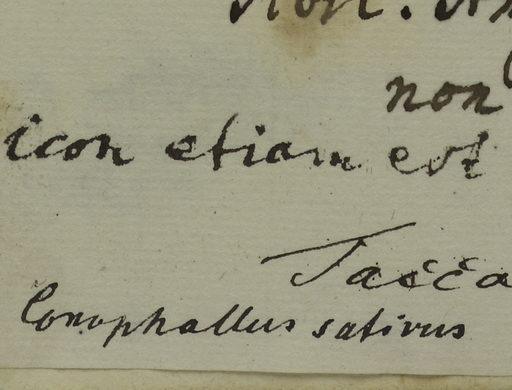 non
icon etiam est
Tacca
Conophallus sativus